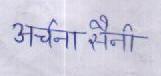 अर्चना सैनी